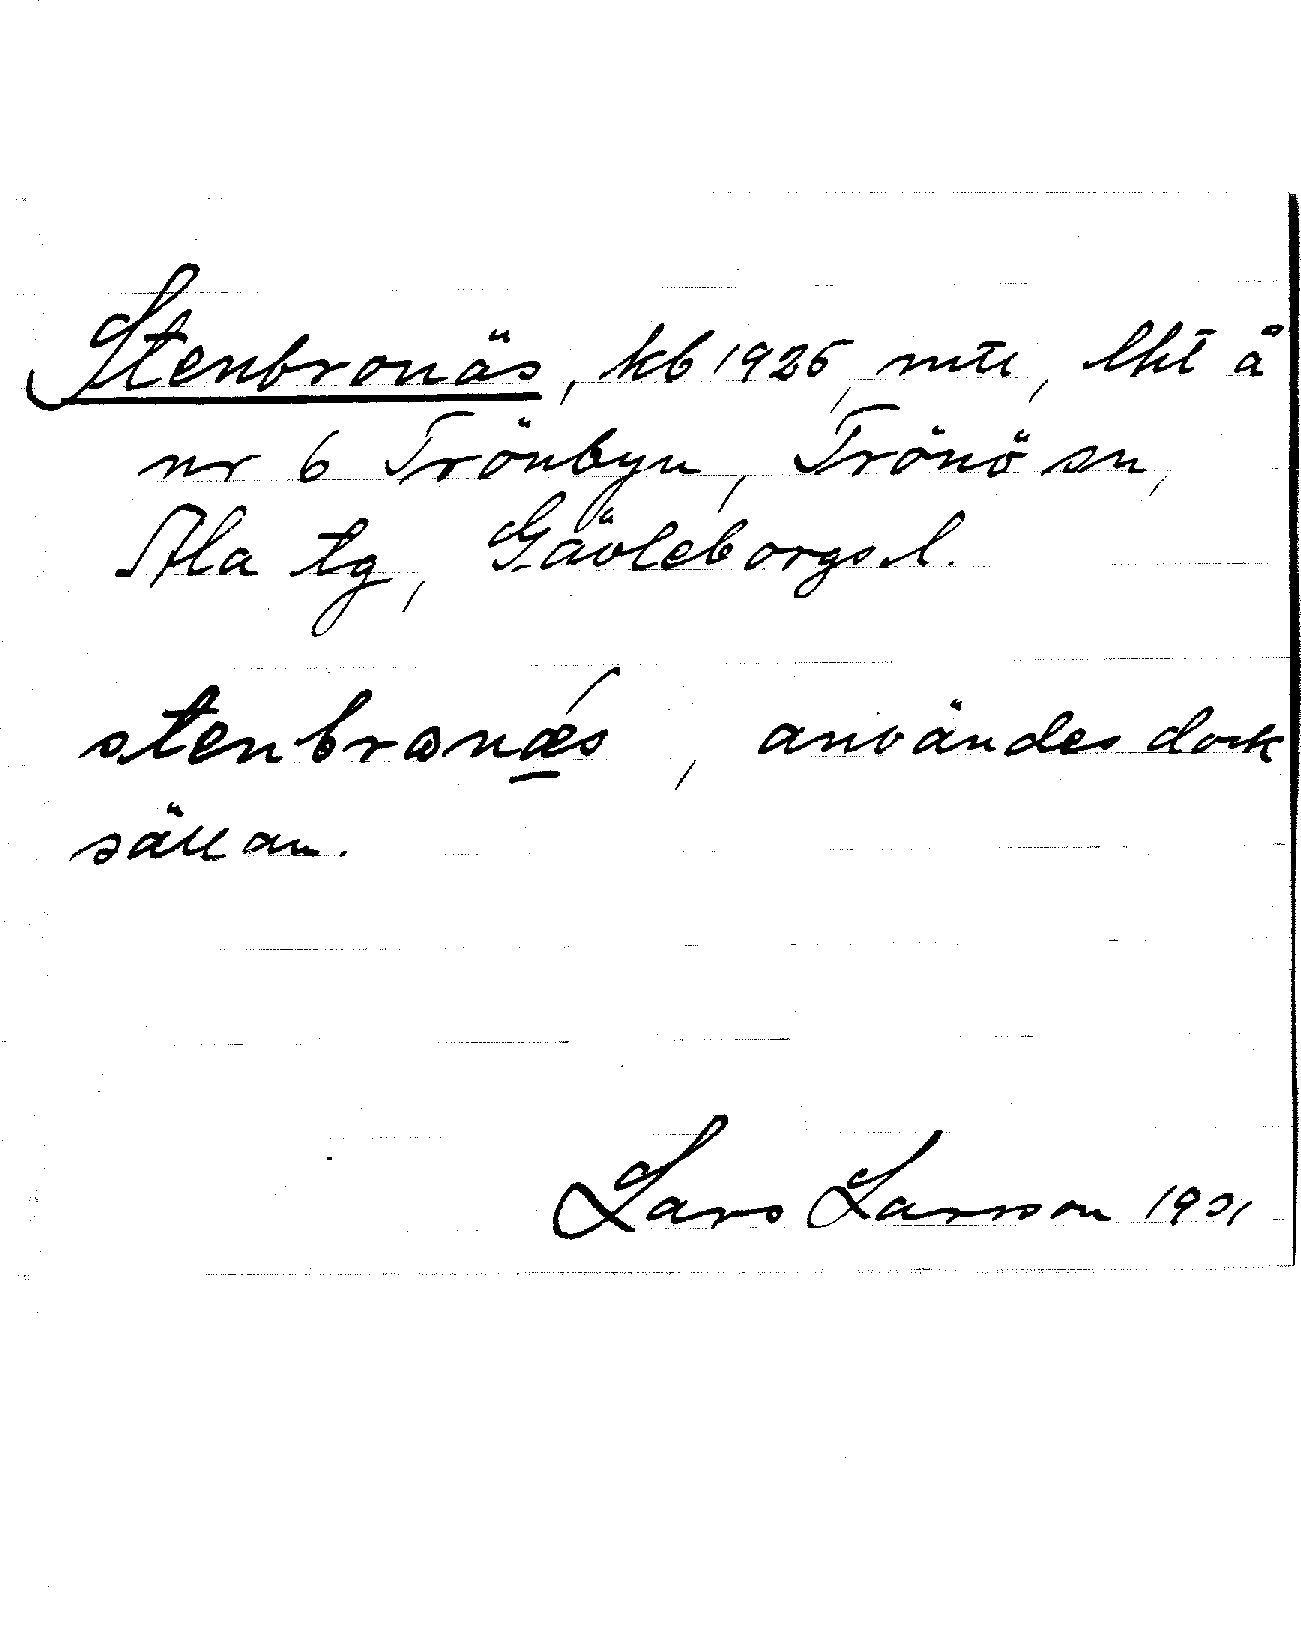 Stenbronäs, kb 1925, mtl, lht å
nr 6 Trönbyn, Trönö sn,
Ala tg, Gävleborgs l.
stenbronǽs, användes dock
sällan.
Lars Larsson